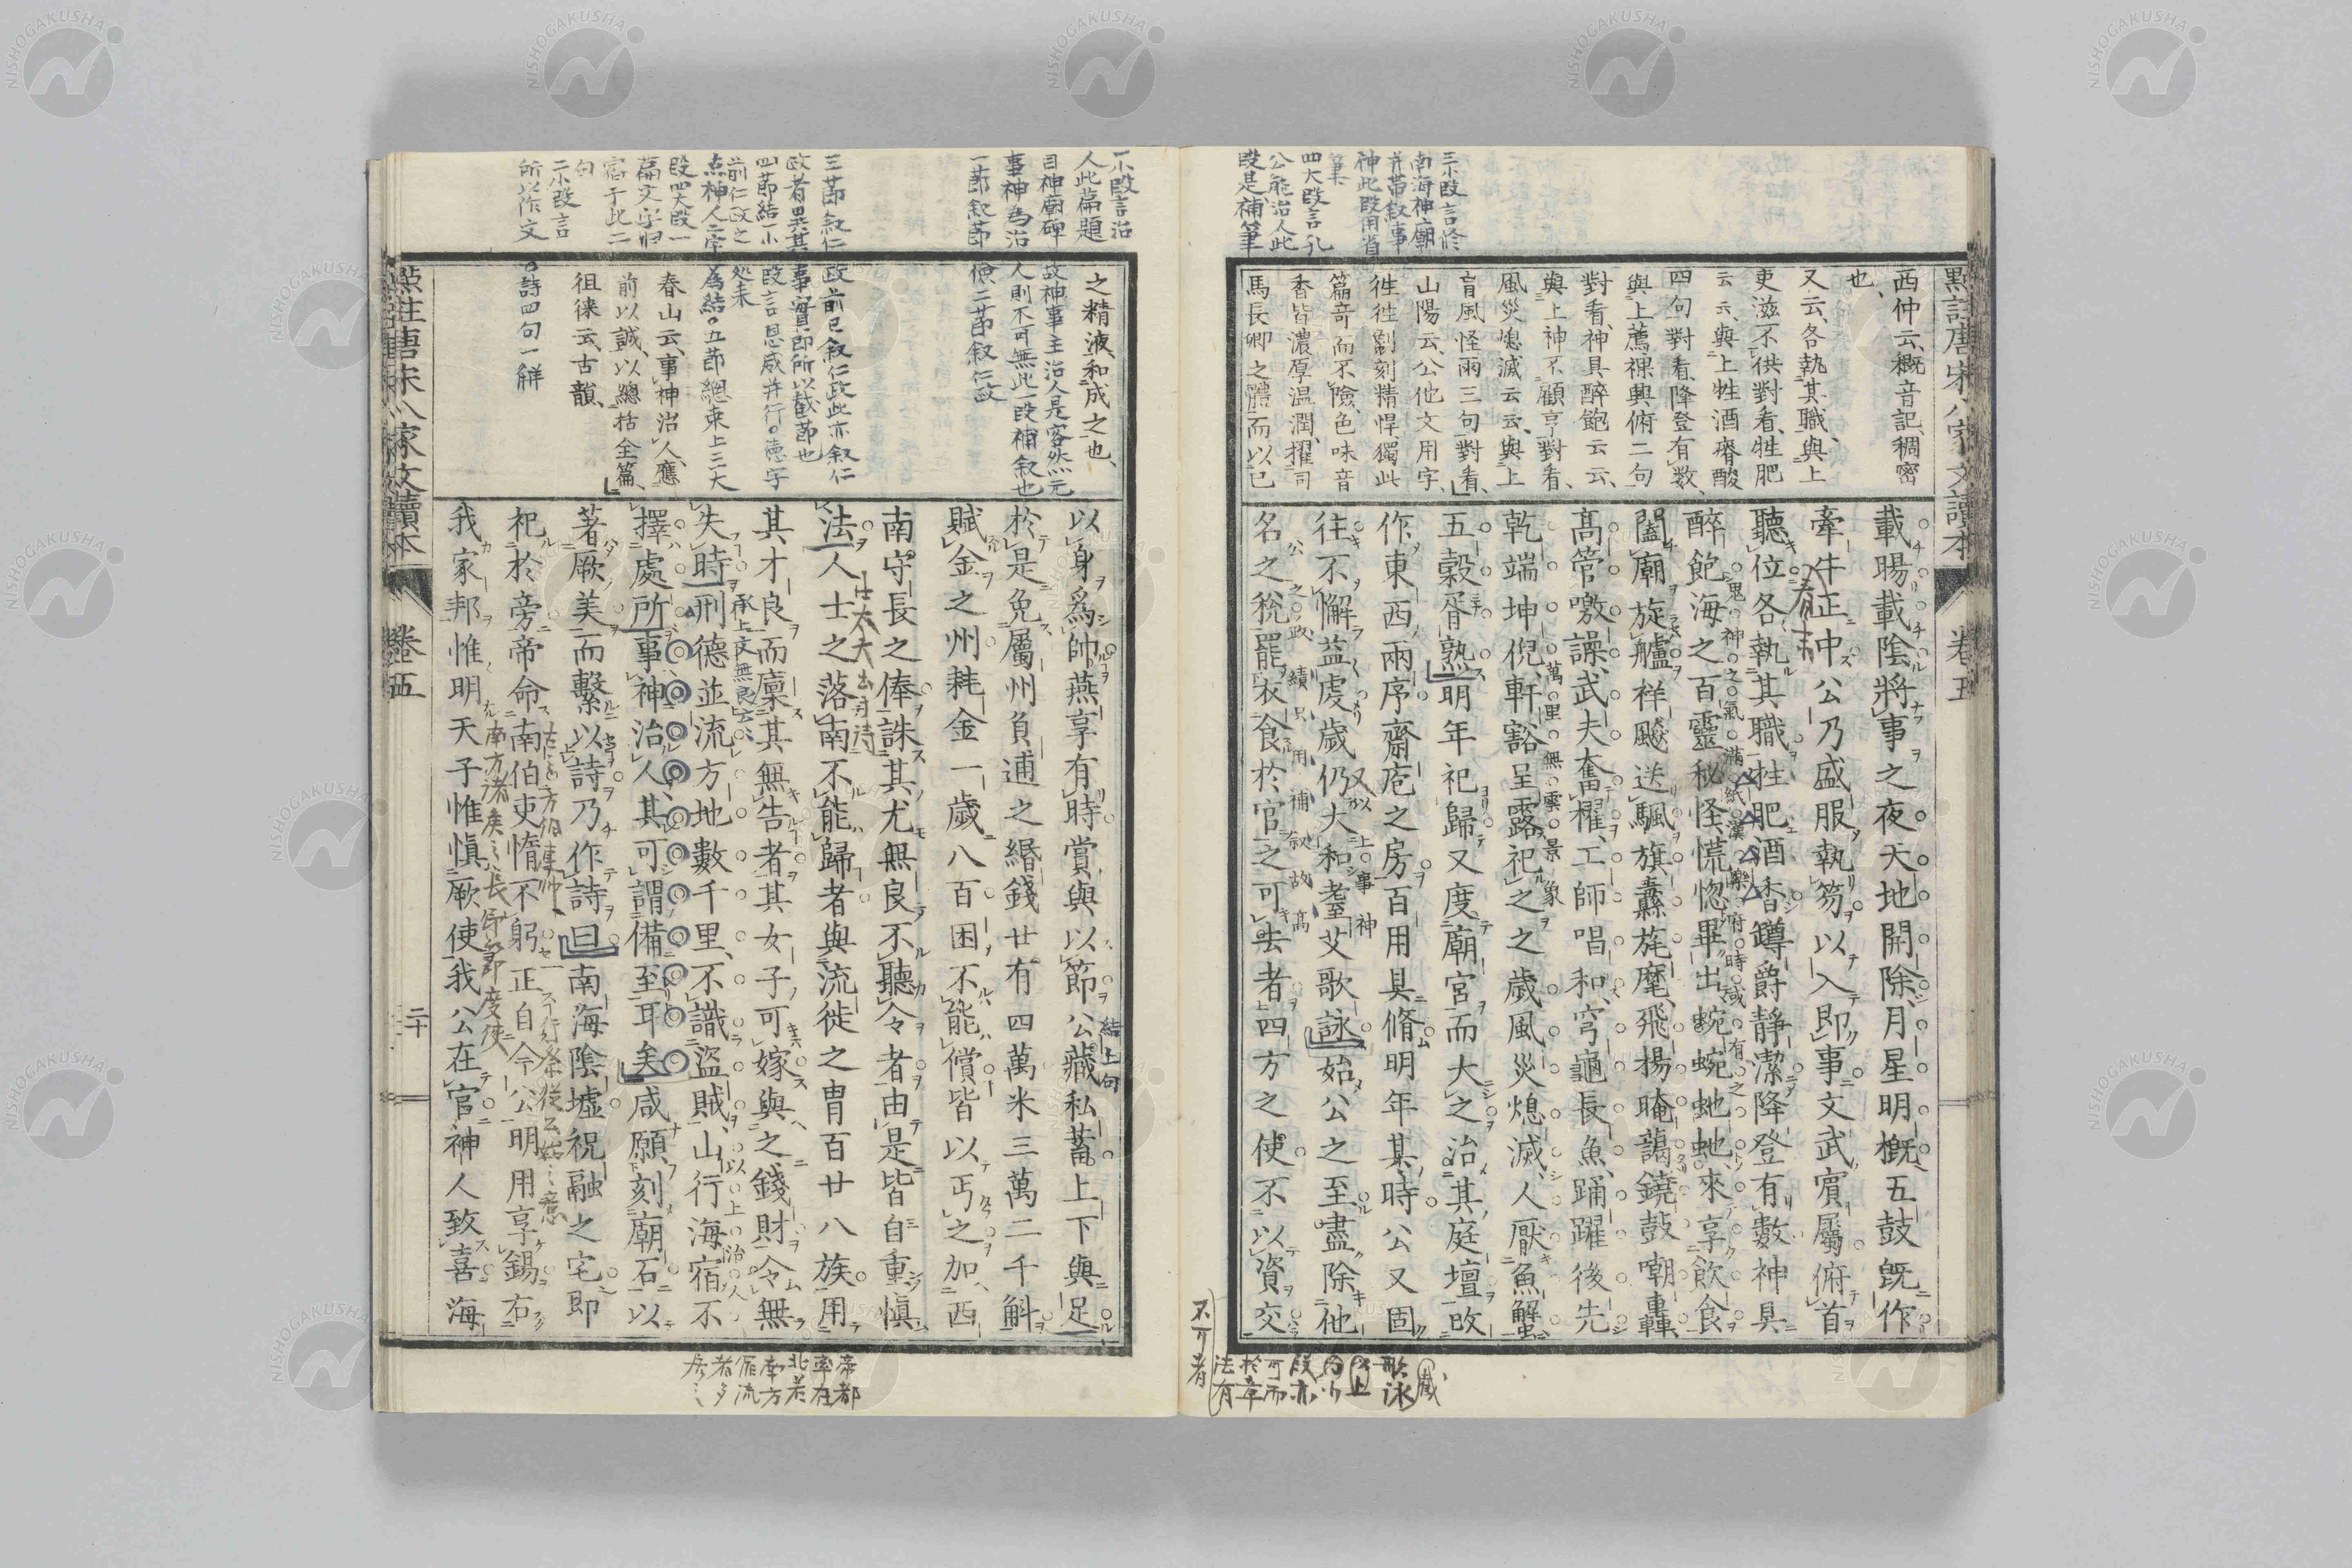 點註唐宋八家文讀本
卷五
三小段言修
南海神廟
并帶叙事
神此段用省
筆
四大段言孔
公能治人此
段是補筆
西仲云、概音記、稠密
也、
又云、各執其職、與上
吏滋不供對看、牲肥
云云、與上牲酒瘠酸
四句對看、降登有數、
與上薦祼興俯二句
對看、神具醉飽云云、
與上神不顧享對看、
風災熄滅云云、與上
盲風怪雨三句對看、
山陽云、公他文用字、
徃徃劖刻精悍、獨此
篇奇而不險、色味音
香皆濃厚温潤、擢司
馬長卿之體、而以已
載暘載陰將事之夜天地開除月星明概五鼓既作
牽牛正中公乃盛服執笏以入即事文武賓屬俯首
聽位各執其職牲肥酒香罇爵静潔降登有數神具
醉飽海之百靈秘怪慌惚畢出蜿蜿虵虵來享飲食
闔廟旋艫祥飇送颿旗纛旄麾飛揚晻藹鐃鼓嘲轟
高管噭譟武夫奮櫂工師唱和穹龜長魚踊躍後先
乾端坤倪軒豁呈露祀之之歳風災熄滅人厭魚蟹
五穀胥熟明年祀歸又度廟宮而大之治其庭壇改
作東西兩序齋庖之房百用具脩明年其時公又固
往不懈益虔歳仍大和耋艾歌詠始公之至盡除他
名之稅罷衣食於官之可去者四方之使不以資交
鬼神之氣滿紙漢樂府時或有之
萬里無雲景象
上事神
公之政績只用補叙故髙
歌詠
以上
段亦
可而
於章
法有
不可者
一小段言治
人此篇題
目神廟碑
故神事主治人是客然元
事神為治
人則不可無此一段補叙也
一節叙節
儉二節叙仁政
三節叙仁
政前已叙仁政此亦叙仁
政者異其
事實即所以截節也
四節結一小
段言恩威并行。德字
前仁政之
処未
点神人二字
為結。五節總束上三大
段四大段一
篇文字歸
宿于此二
句
二小段言
所以作文
。詩四句一解
之精液、和成之也、
春山云、事神治人、應
前以誠、以總括全篇、
徂徠云、古韻、
以身為帥燕享有時賞與以節公藏私蓄上下與足
於是免屬州負逋之緡錢廿有四萬米三萬二千斛
賦金之州耗金一歳八百困不能償皆以丐之加西
南守長之俸誅其尤無良不聽令者由是皆自重愼
法人士之落南不能歸者與流徙之冑百廿八族用
其才良而廩其無告者其女子可嫁與之錢財令無
失時刑德並流方地數千里不識盜賊山行海宿不
擇處所事神治人其可謂備至耳矣咸願刻廟石以
著厥美而繫以詩乃作詩曰南海陰墟祝融之宅即
祀於旁帝命南伯吏惰不躬正自今公明用享錫右
我家邦惟明天子惟愼厥使我公在官神人致喜海
結上句
士大夫
承上文無良云々
以上治人
南方諸矦之長即節度使
帝都
率在
北若
南方
雁流
者多
點註唐宋八家文讀本
卷五
二十